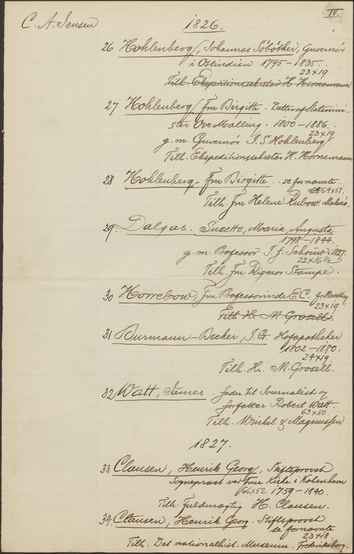 IV.
C. A. Jensen 1826.
26 Hohlenberg, Johannes Søbøtker, Guvernør
i Ostindien 1795-1835.
23x19
Tilh. Ekspeditionssekretær H. Hornemann
27 Hohlenberg, Fru Birgitte. Datter af Statsmini-
ster Ove Malling. 1800-1886.
23x19
g. m. Guvernør J. S. Hohlenberg
Tilh. Ekspeditionssekretær H. Hornemann
28 Hohlenberg, Fru Birgitte. se foranstr.
Tilh. Fru Helene Rubow
29 Dalgas. Susette, Maria, Augusta
1798-1844.
g. m. Professor J. F. Schouw
Tilh. Fru Stampe.
30 Horrebow, Fru Professorinde E. C.
23x19
Tilh. H. M. Grosell.
31 Burmann-Becker, J. G. Hofapotheker
1802-1870.
24x19
Tilh. H. M. Grosell.
32 Watt, James fader til Journalist og
forfatter Robert Watt.
Tilh. Winkel & Magnussen
1827.
33 Clausen, Henrik Georg, Stiftsprovst
Sognepræst ved Frue Kirke i København
1759-1840.
Tilh. Fuldmægtig H. Clausen.
34 Clausen, Henrik Georg. Stiftsprovst
se foranstr.
Tilh. Det nationalhist. Museum. Frederiksborg.